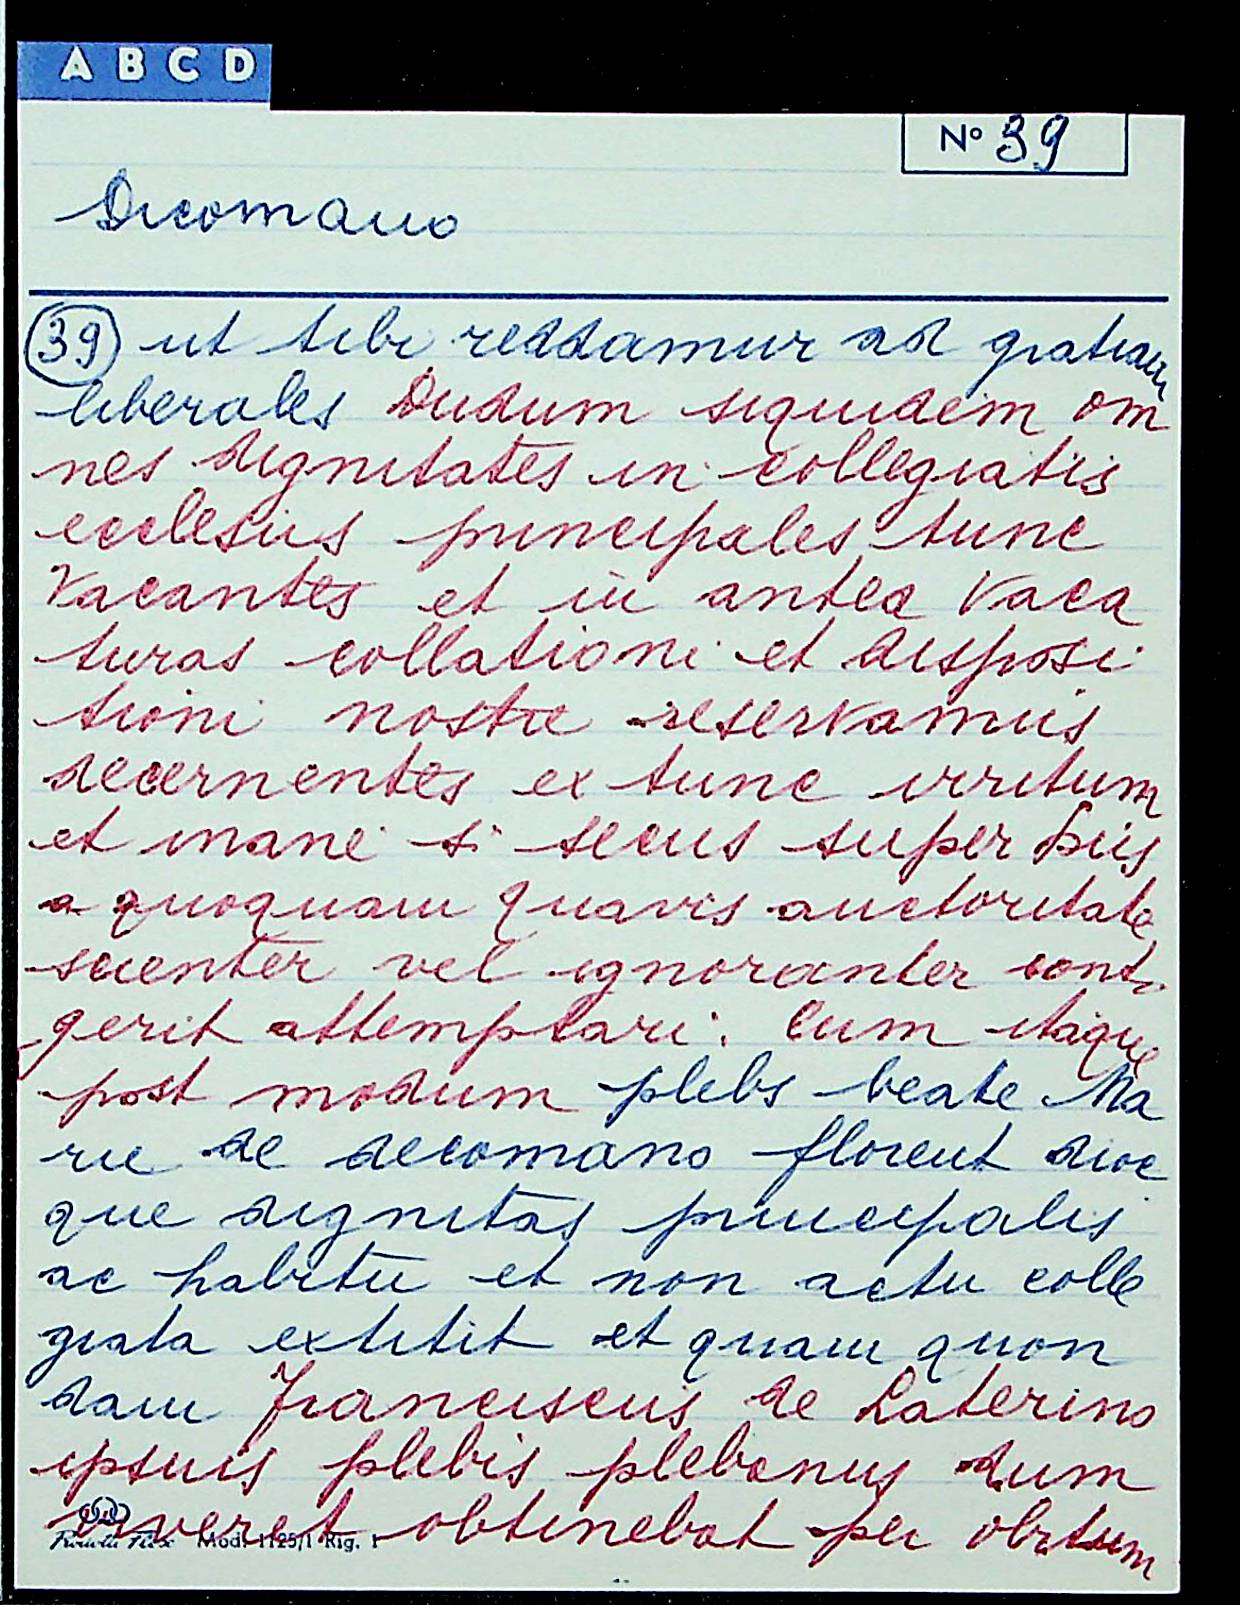 A B C D
N° 39
Dicomano
39 ut tibi reddamur ad gratiam
liberales Dudum siquidem om
nes dignitates in collegiatis
ecclesiis principales tunc
vacantes et in antea vaca
turas collationi et disposi
tioni nostre reservamus
decernentes ex tunc irritum
et inane si secus super hiis
a quoquam quavis auctoritate
scienter vel ignoranter conti
gerit attemptari. Cum itaque
post modum plebs beate Ma
rie de decomano florent dioc
que dignitas principalis
ac habitu et non actu colle
giata extitit et quam quon
dam Franciscus de Laterino
ipsius plebis plebanus dum
viveret obtinebat per obitum
Mod. 1125/1 Rig. 1